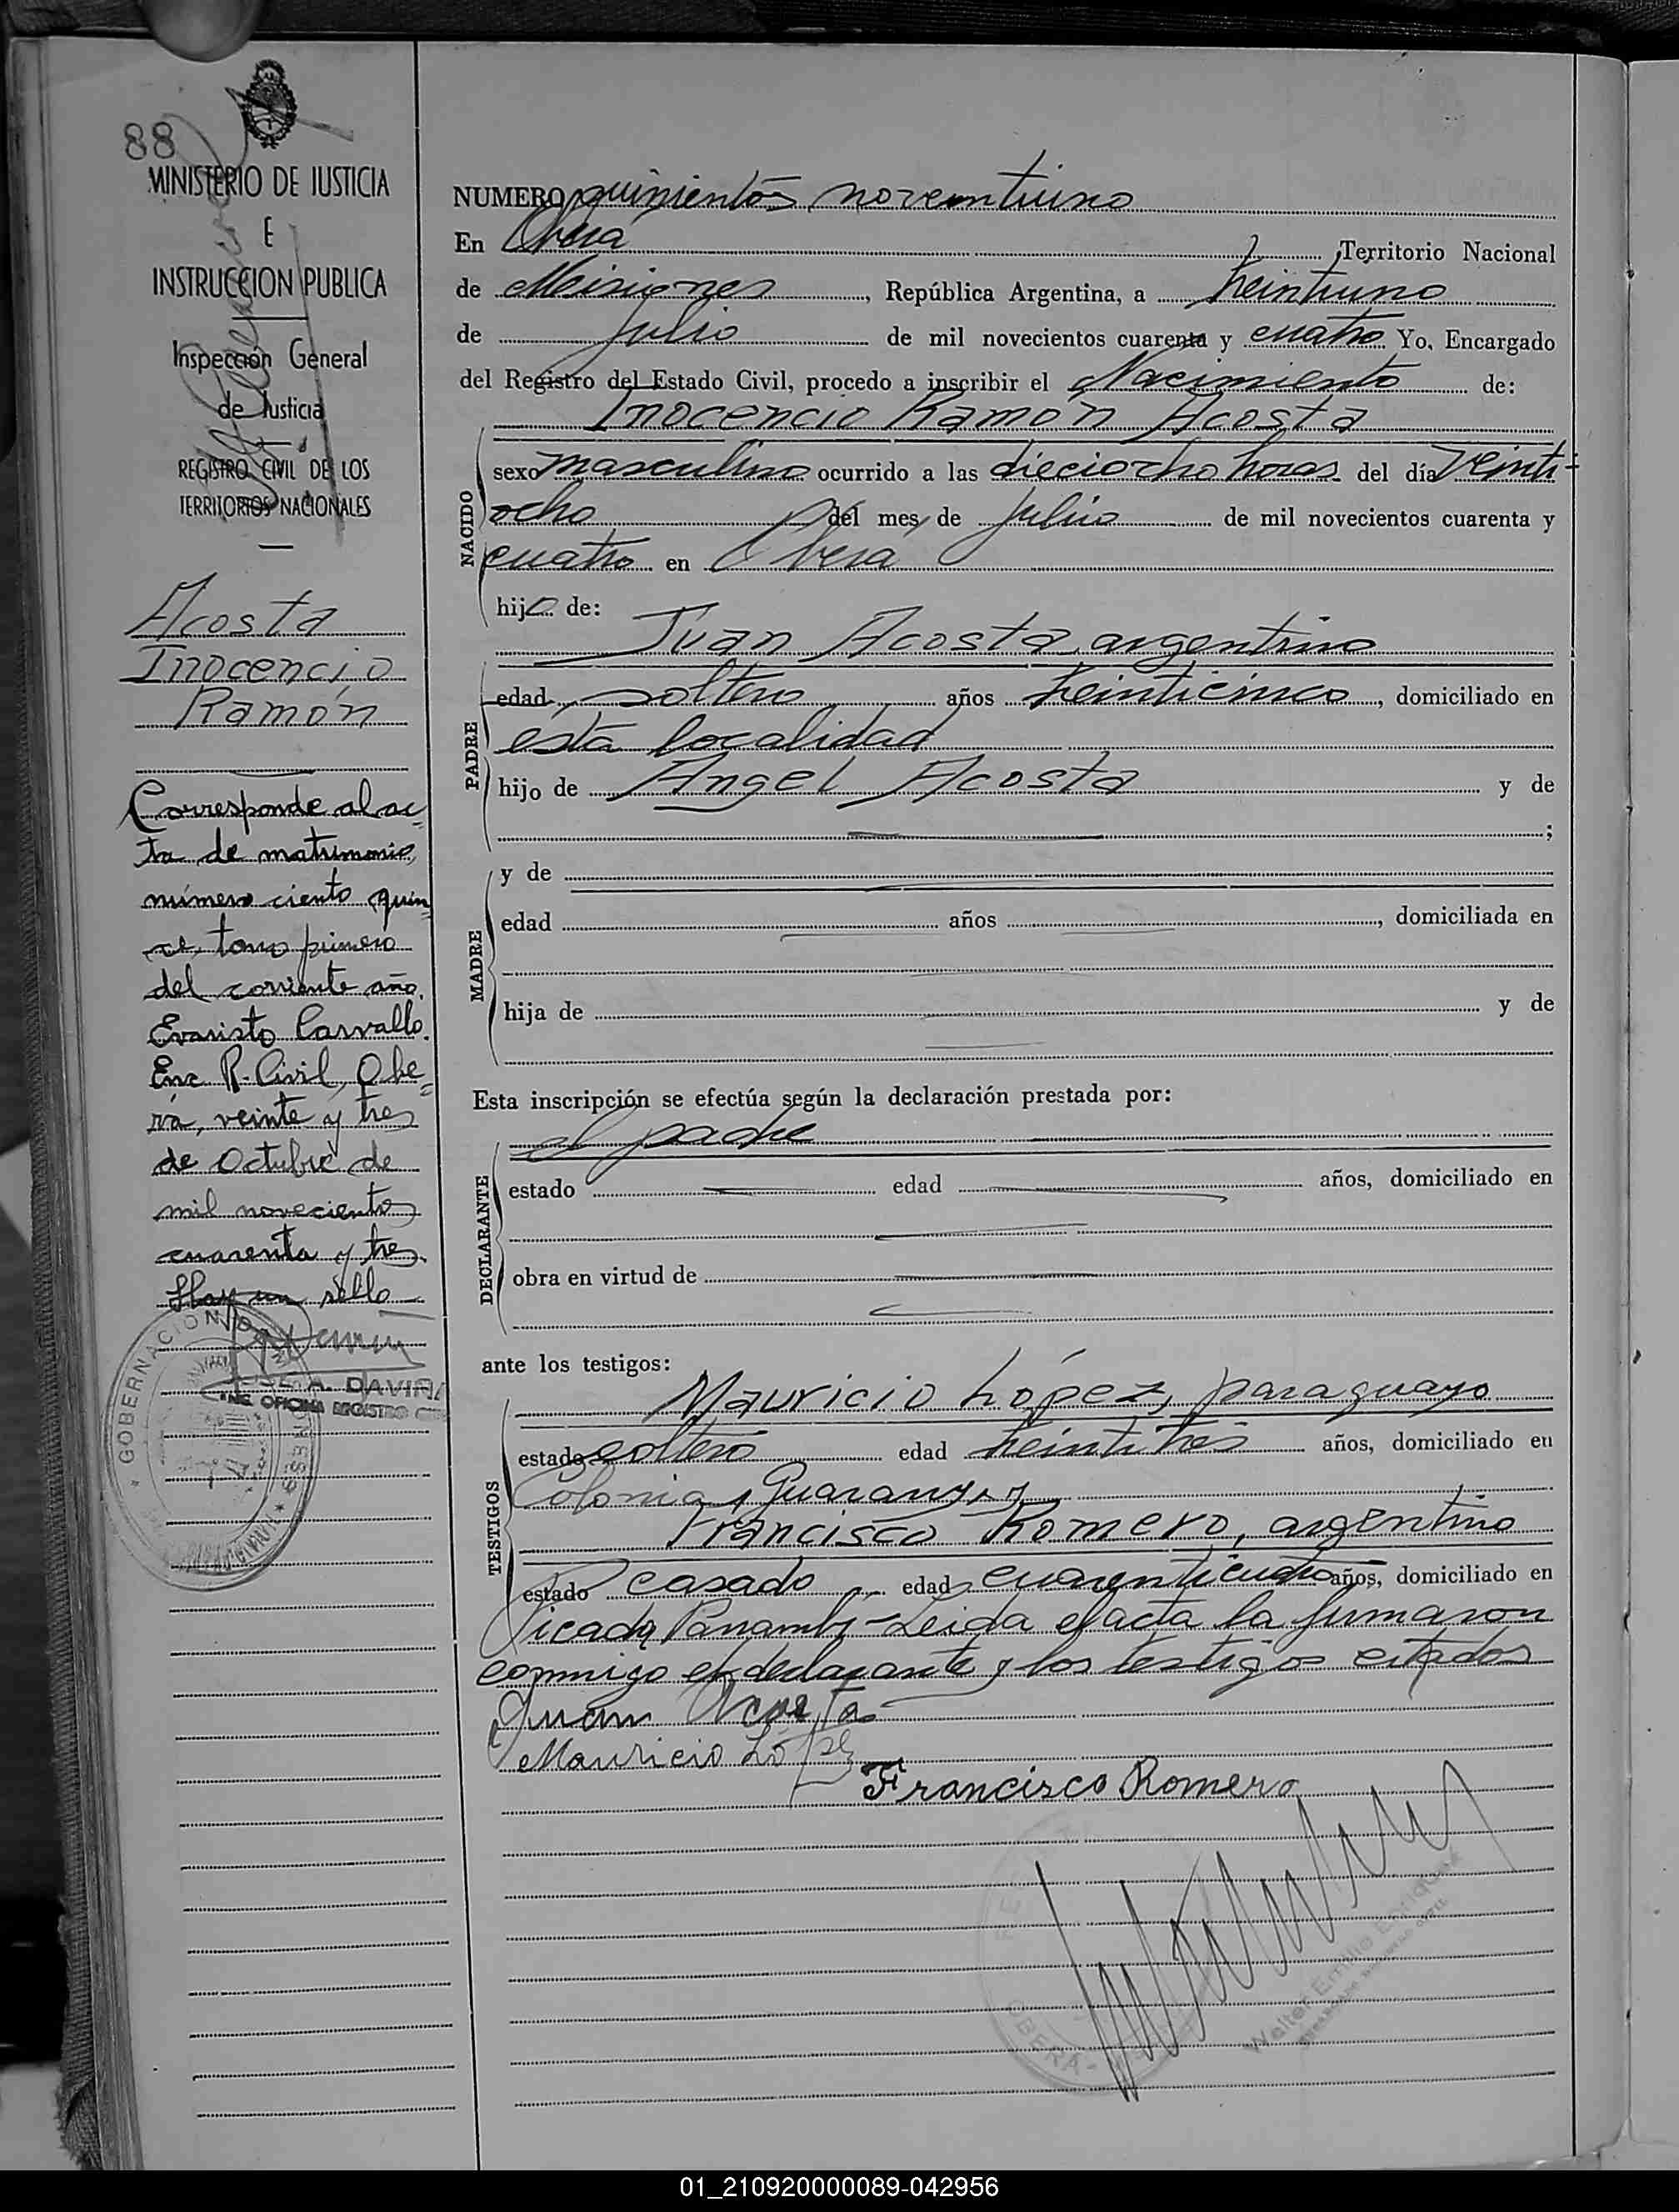 88
MINISTERIO DE JUSTICIA
E
INSTRUCCION PUBLICA
Inspección General
de Justicia
REGISTRO CIVIL DE LOS
TERRITORIOS NACIONALES
Acosta
Inocencio
Ramón
Corresponde al ac-
ta de matrimonio
número ciento quin
ce, tomo primero
del corriente año.
Evaristo Carvallo.
Enc. R. Civil, Obe-
rá, veinte y tres
de Octubre de
mil novecientos
cuarenta y tres.
Hay un sello
GOBERNACION DE MISIONES
A. DAVIÑA
ENC. OFICINA REGISTRO CIVIL
NUMERO quinientos noventiuno
En Obera Territorio Nacional
de Misiones, República Argentina, a treintiuno
de Julio de mil novecientos cuarenta y cuatro Yo, Encargado
del Registro del Estado Civil, procedo a inscribir el Nacimiento de:
Inocencio Ramon Acosta
NACIDO
sexo masculino ocurrido a las dieciocho horas del día veinti-
ocho del mes de Julio de mil novecientos cuarenta y
cuatro en Obera
hijo de:
Juan Acosta, argentino
PADRE
edad soltero años treinticinco, domiciliado en
esta localidad
hijo de Angel Acosta y de
;
MADRE
y de
edad años, domiciliada en
hija de y de
Esta inscripción se efectúa según la declaración prestada por:
el padre
DECLARANTE
estado edad años, domiciliado en
obra en virtud de
ante los testigos:
TESTIGOS
Mauricio López, paraguayo
estado soltero edad treintitres años, domiciliado en
Colonia Guarany, y
Francisco Romero, argentino
estado casado edad cuarenticuatro años, domiciliado en
Picada Panambí-Leida el acta la firmaron
conmigo el declarante y los testigos citados
Juan Acosta
Mauricio López
Francisco Romero
OBERA
Walter Emilio Enrique
01_210920000089-042956